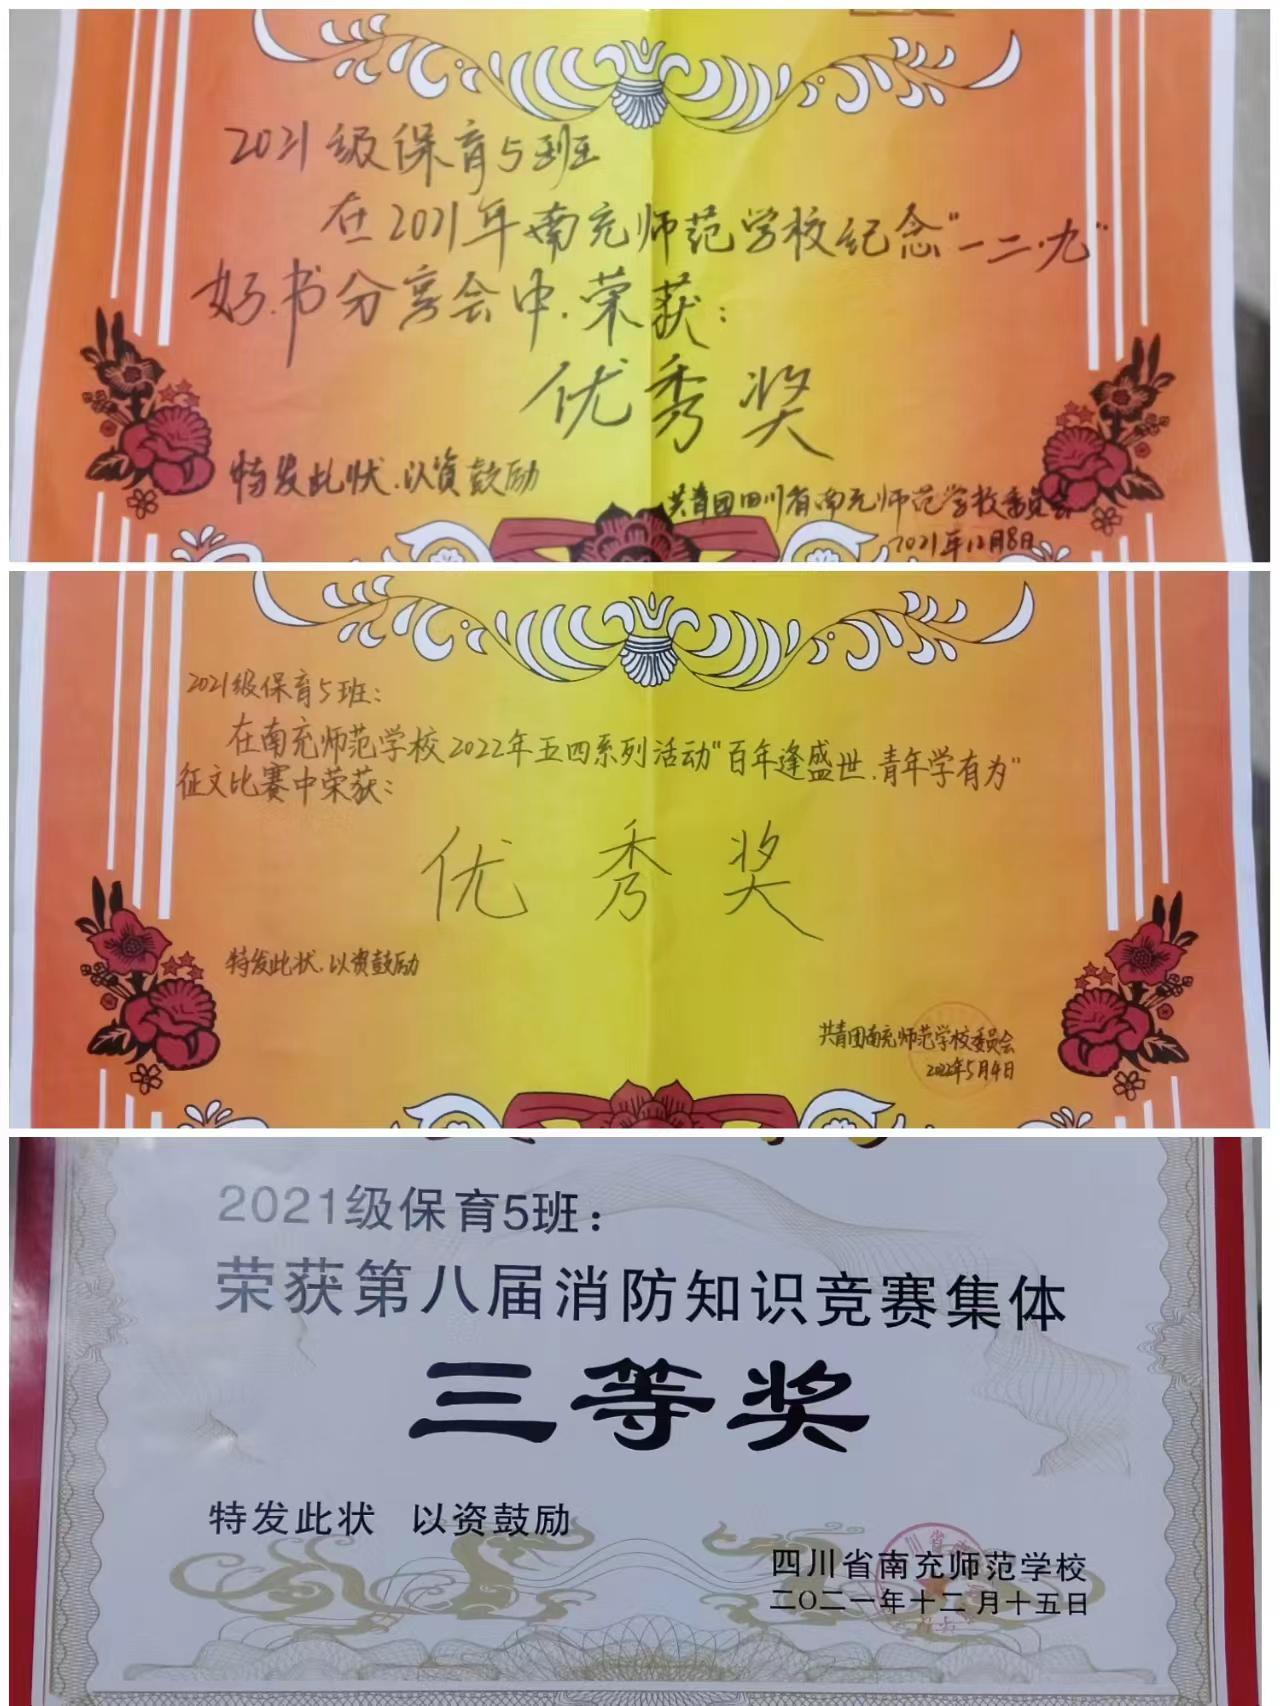 2021级保育5班
在2021年南充师范学校纪念“一二·九”
好书分享会中.荣获：
优秀奖
特发此状.以资鼓励
共青团四川省南充师范学校委员会
2021年12月8日
2021级保育5班：
在南充师范学校2022年五四系列活动“百年逢盛世.青年学有为”
征文比赛中荣获：
优秀奖
特发此状.以资鼓励
共青团南充师范学校委员会
2022年5月4日
2021级保育5班：
荣获第八届消防知识竞赛集体
三等奖
特发此状 以资鼓励
四川省南充师范学校
二〇二一年十二月十五日